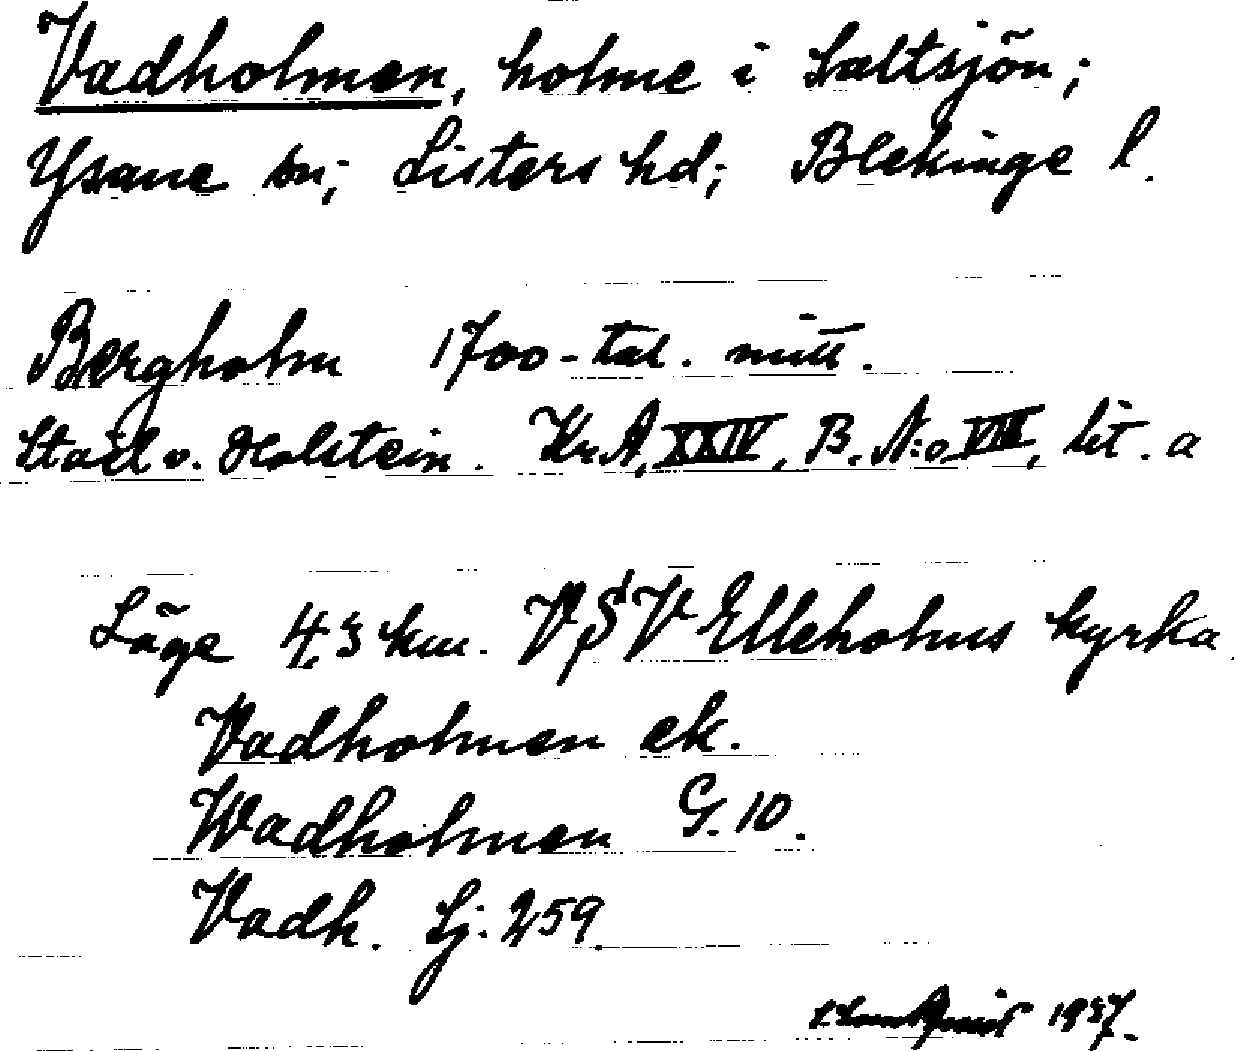 Vadholmen, holme i Saltsjön;
Ysane sn; Listers hd; Blekinge l.
Bergholm 1700-tal. mitt.
Stael v. Holstein. Kr.A. XXIV, B. N:o VIII, lit. a
Läge 4,3 km. V S V Elleholms kyrka
Vadholmen ek.
Wadholmen G. 10.
Vadh. Sj. 259.
1937.